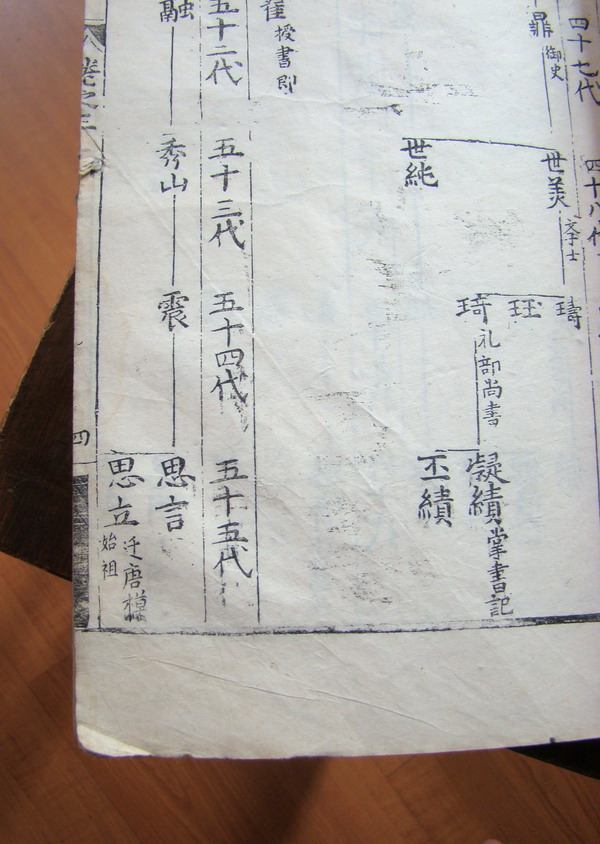 四十七代
鼎
御史
四十八代
世美
文学士
世純
璹
珏
琦
礼部尚書
凝績
掌書記
丕績
授書郎
五十二代
融
五十三代
秀山
五十四代
震
五十五代
思言
思立
迁唐模
始祖
卷之三
四